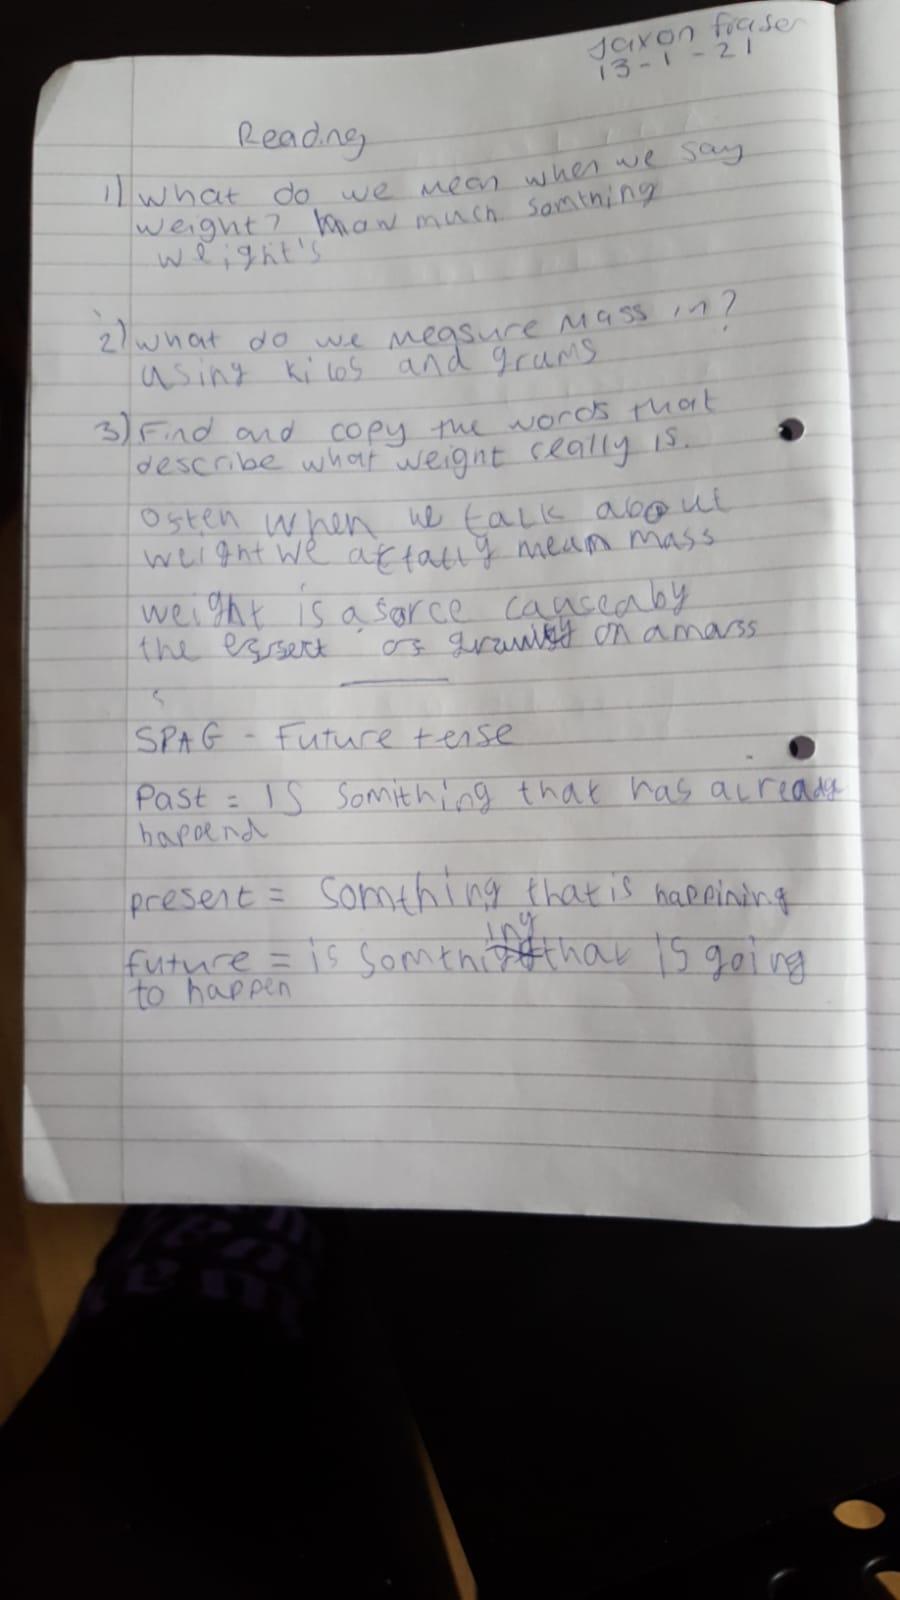 Jaxon fraser
13-1-21
Reading
1) What do we mean when we say
weight? how much somthing
weight's
2) what do we measure mass in?
using kilos and grams
3) Find and copy the words that
describe what weight really is.
Osten when we talk about
weight we attatly mean mass
weight is a sorce caused by
the essect os gravity on a mass
SPAG - Future tense
Past = IS somithing that has already
happend
present = Somthing that is happining
future = is somthing that is going
to happen